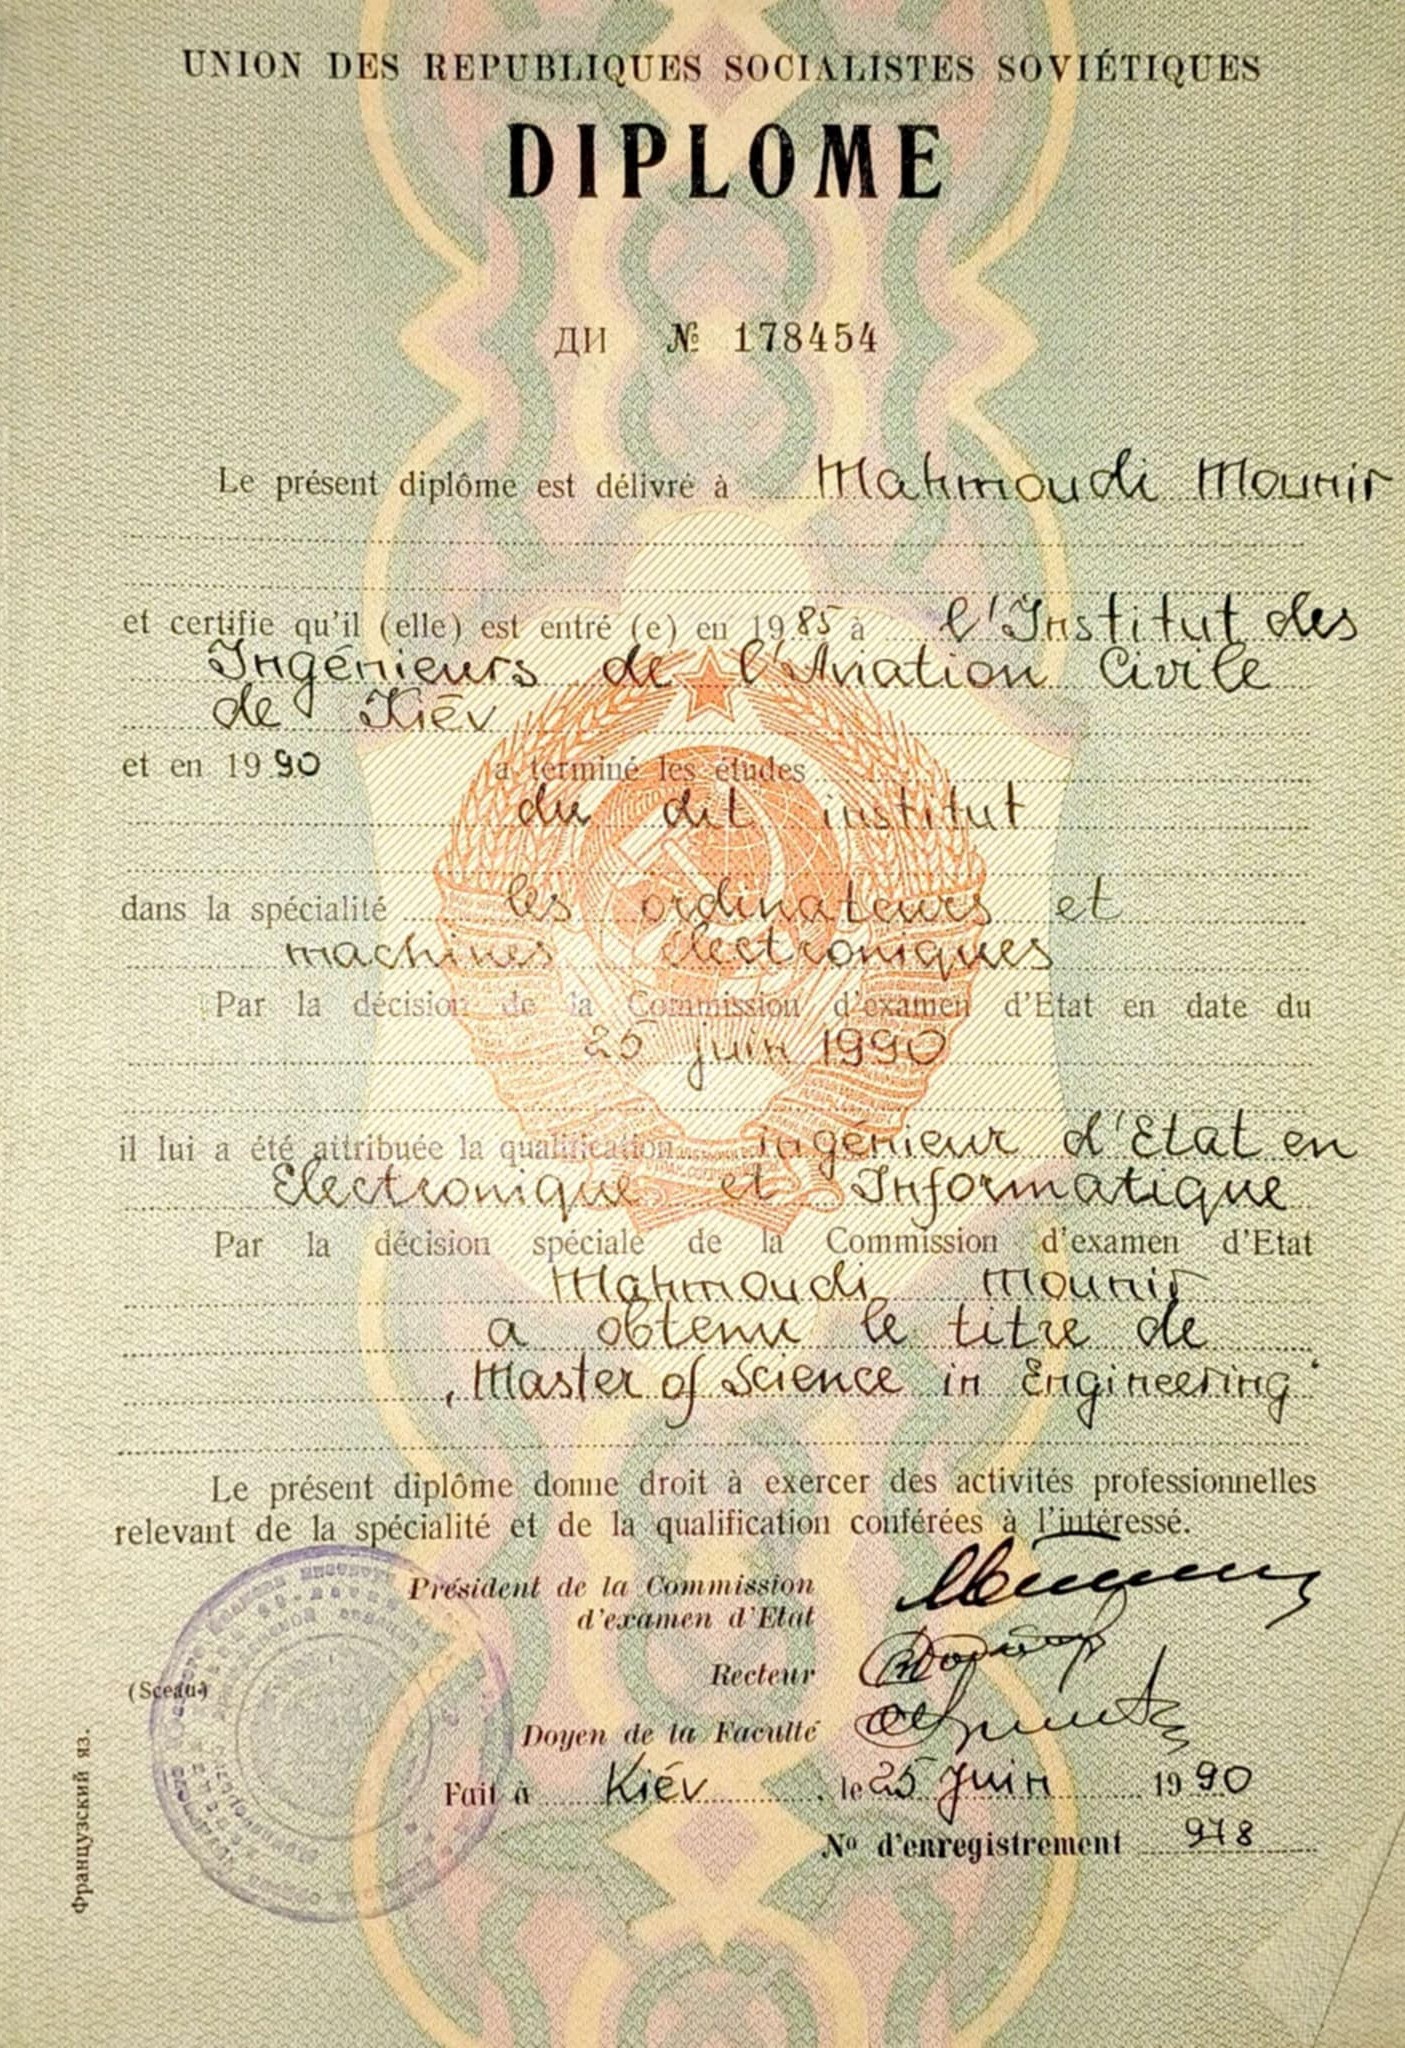 UNION DES REPUBLIQUES SOCIALISTES SOVIÉTIQUES
DIPLOME
ДИ № 178454
Le présent diplôme est délivré à Mahmoudi Mounir
et certifie qu'il (elle) est entré (e) en 1985 à l'Institut des
Ingénieurs de l'Aviation Civile
de Kiév
et en 1990 a terminé les études
du dit institut
dans la spécialité les ordinateurs et
machines électroniques
Par la décision de la Commission d'examen d'Etat en date du
25 juin 1990
il lui a été attribuée la qualification ingénieur d'Etat en
Electronique et Informatique
Par la décision spéciale de la Commission d'examen d'Etat
Mahmoudi Mounir
a obtenu le titre de
„Master of Science in Engineering"
Le présent diplôme donne droit à exercer des activités professionnelles
relevant de la spécialité et de la qualification conférées à l'intéressé.
Président de la Commission
d'examen d'Etat
Recteur
(Sceau)
Doyen de la Faculté
Fait à Kiév, le 25 Juin 1990
Nº d'enregistrement 978
Французский яз.